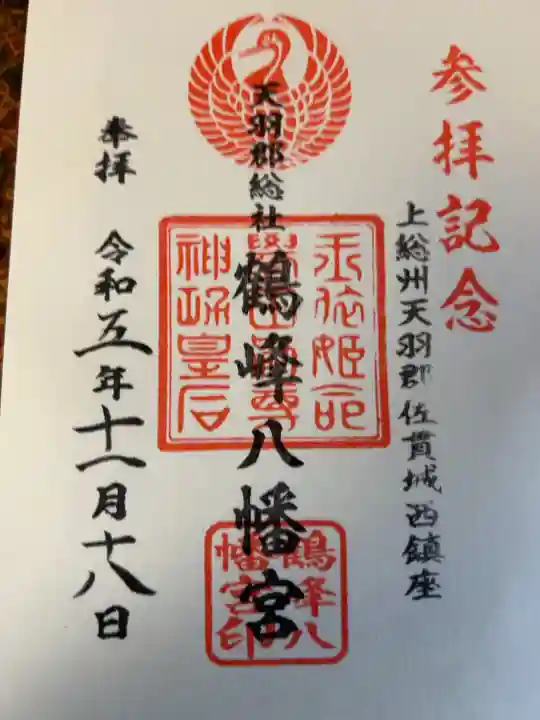 参拝記念
上総州天羽郡佐貫城西鎮座
天羽郡総社
鶴峰八幡宮
玉依姫命
神功皇后
鶴峰八
幡宮印
奉拝 令和五年十一月十八日